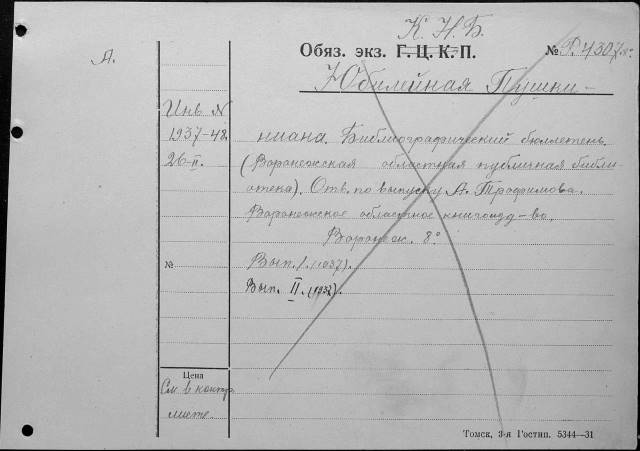 К. Н. Б.
А.
Обяз. экз. Г. Ц. К. П. № Р.4307 8°
Юбилейная Пушки-
Инв №
1937-48
26-II.
ниана. Библиографический бюллетень.
(Воронежская областная публичная библи-
отека). Отв. по выпуску А. Трофимова.
Воронежское областное книгоизд-во.
Воронеж. 8°
№
Вып. I. (1937).
Вып. II. (1937).
Цена
См в контр.
листе
Томск, 3-я Гостип. 5344—31